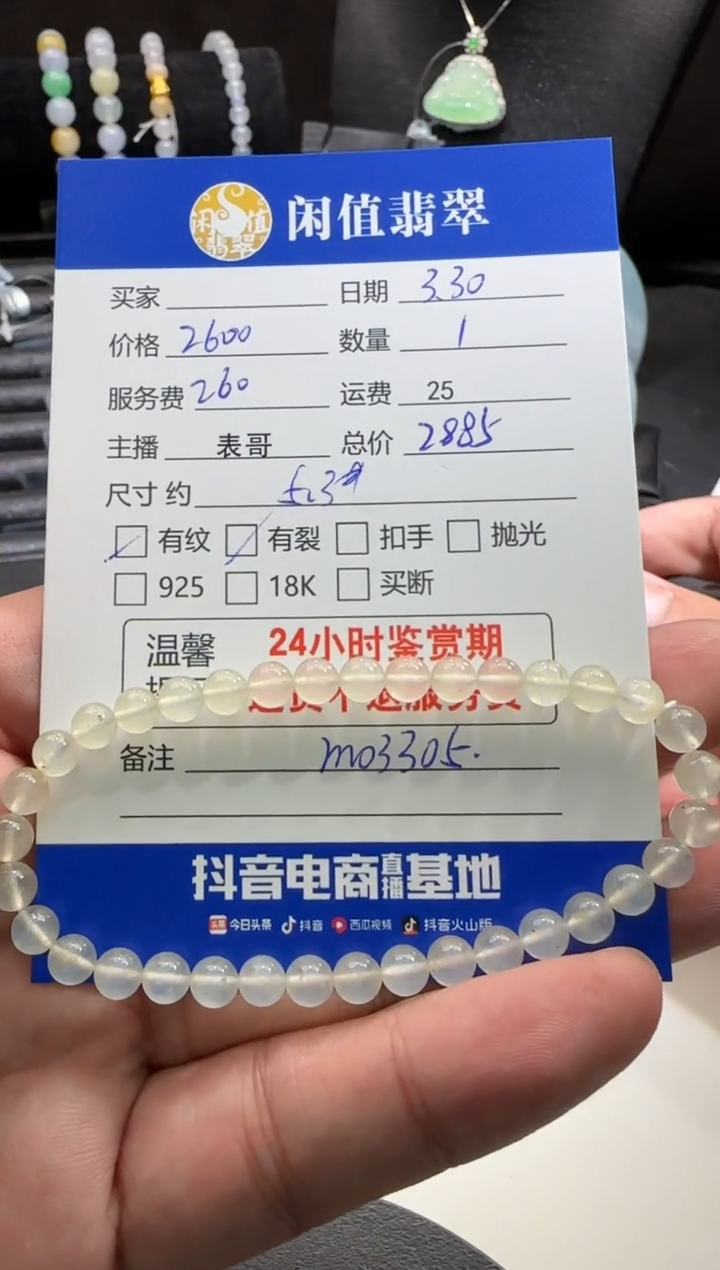 闲值翡翠
闲值翡翠
买家 日期 3.30
价格 2600 数量 1
服务费 260 运费 25
主播 表哥 总价 2885
尺寸 约 5.3#
有纹 有裂 扣手 抛光
925 18K 买断
温馨 24小时鉴赏期
退货不退服务费
备注 m03305.
抖音电商直播基地
头条 今日头条 抖音 西瓜视频 抖音火山版